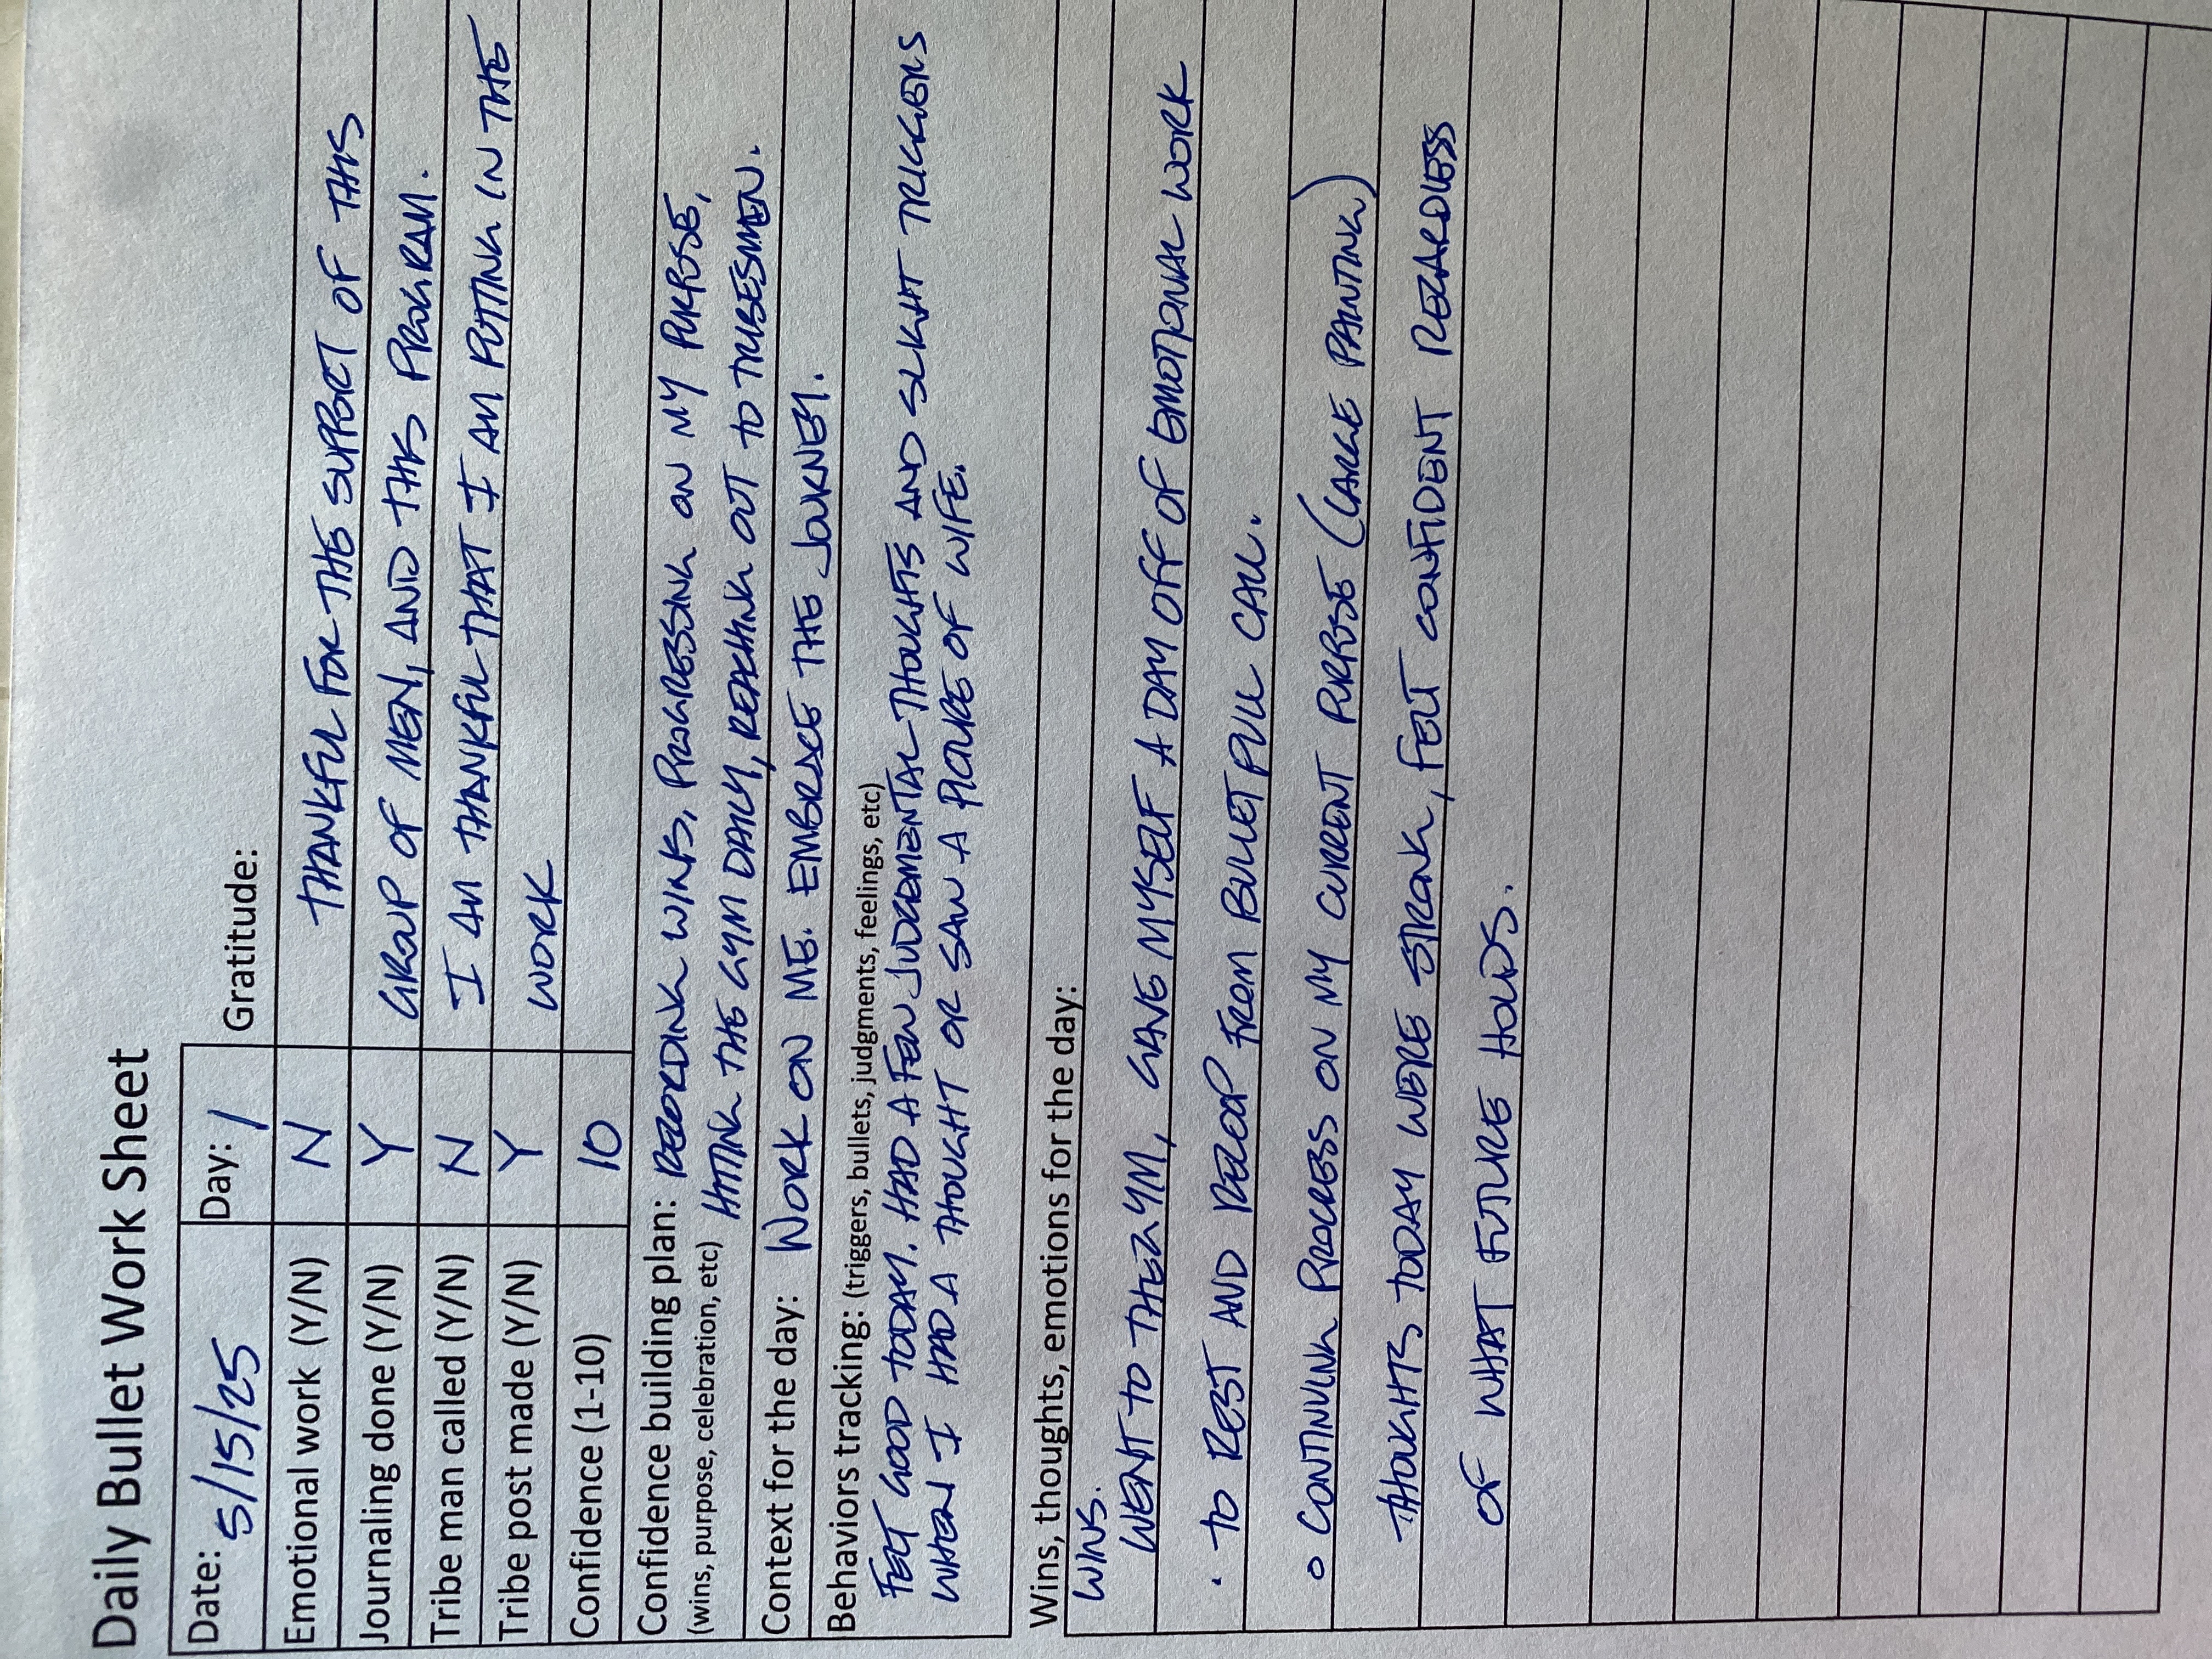 Daily Bullet Work Sheet
Date: 5/15/25 Day: 1 Gratitude:
Emotional work (Y/N) N THANKFUL FOR THE SUPPORT OF THIS
Journaling done (Y/N) Y GROUP OF MEN, AND THIS PROGRAM.
Tribe man called (Y/N) N I AM THANKFUL THAT I AM PUTTING IN THE
Tribe post made (Y/N) Y WORK
Confidence (1-10) 10
Confidence building plan: RECORDING WINS, PROGRESSING ON MY PURPOSE,
(wins, purpose, celebration, etc) HITTING THE GYM DAILY, REACHING OUT TO TRIBESMEN.
Context for the day: WORK ON ME. EMBRACE THE JOURNEY.
Behaviors tracking: (triggers, bullets, judgments, feelings, etc)
FELT GOOD TODAY. HAD A FEW JUDGEMENTAL THOUGHTS AND SLIGHT TRIGGERS
WHEN I HAD A THOUGHT OR SAW A PICTURE OF WIFE.
Wins, thoughts, emotions for the day:
WINS.
WENT TO THE GYM, GAVE MYSELF A DAY OFF OF EMOTIONAL WORK
• TO REST AND RECOUP FROM BULLET PULL CALL.
○ CONTINUING PROCESS ON MY CURRENT PURPOSE (LARGE PAINTING)
THOUGHTS TODAY WERE STRONG, FELT CONFIDENT REGARDLESS
OF WHAT FUTURE HOLDS.